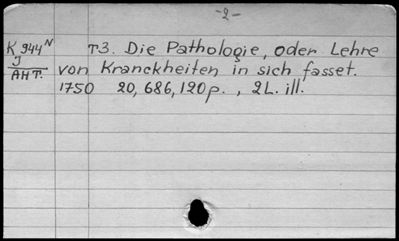 -2-
K 944ᴺ T3. Die Pathologie, oder Lehre
J von Kranckheiten in sich fasset.
AHT. 1750 20, 686, 120p., 2L. ill.